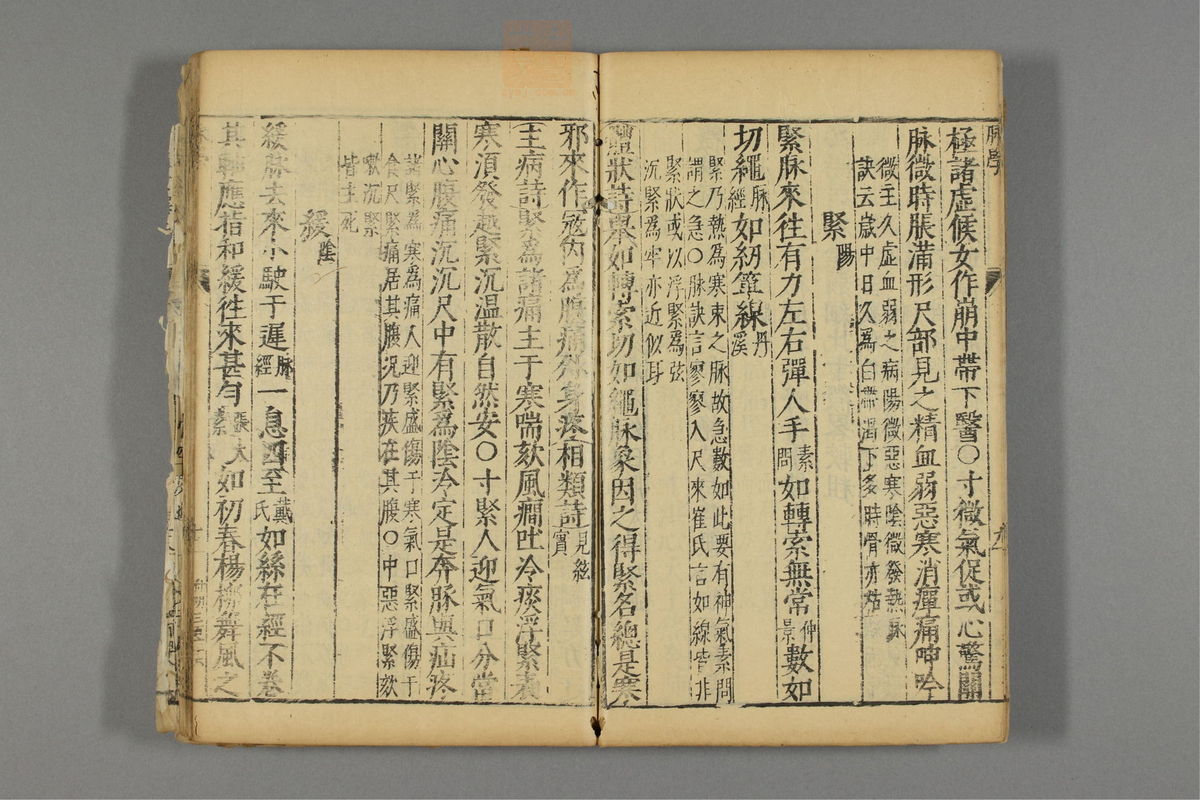 脉學
極諸虛候女作崩中帶下醫○寸微氣促或心驚關
脉微時脹滿形尺部見之精血弱惡寒消癉痛呻吟
微主久虛血弱之病陽微惡寒陰微發熱脉
訣云崴中日久爲白帶漏下多時骨亦枯
緊陽
緊脉來往有力左右彈人手素問如轉索無常仲景數如
切繩脉經如紉箄線丹溪
緊乃熱爲寒束之脉故急數如此要有神氣素問
謂之急○脉訣言寥寥入尺來崔氏言如線皆非
緊狀或以浮緊爲弦
沉緊爲牢亦近似耳
體狀詩舉如轉索切如繩脉象因之得緊名總是寒
邪來作寇內爲腹痛外身疼相類詩見絃實
主病詩緊爲諸痛主于寒喘欬風癇吐冷痰浮緊表
寒須發越緊沉温散自然安○寸緊人迎氣口分當
關心腹痛沉沉尺中有緊爲陰冷定是奔豚與疝疼
諸緊爲寒爲痛人迎緊盛傷于寒氣口緊盛傷于
食尺緊痛居其腹况乃疾在其腹○中惡浮緊欬
嗽沉緊
皆主死
緩陰
緩脉去來小駛于遲脉經一息四至戴氏如絲在經不卷
其軸應指和緩往來甚匀張太素如初春楊柳舞風之